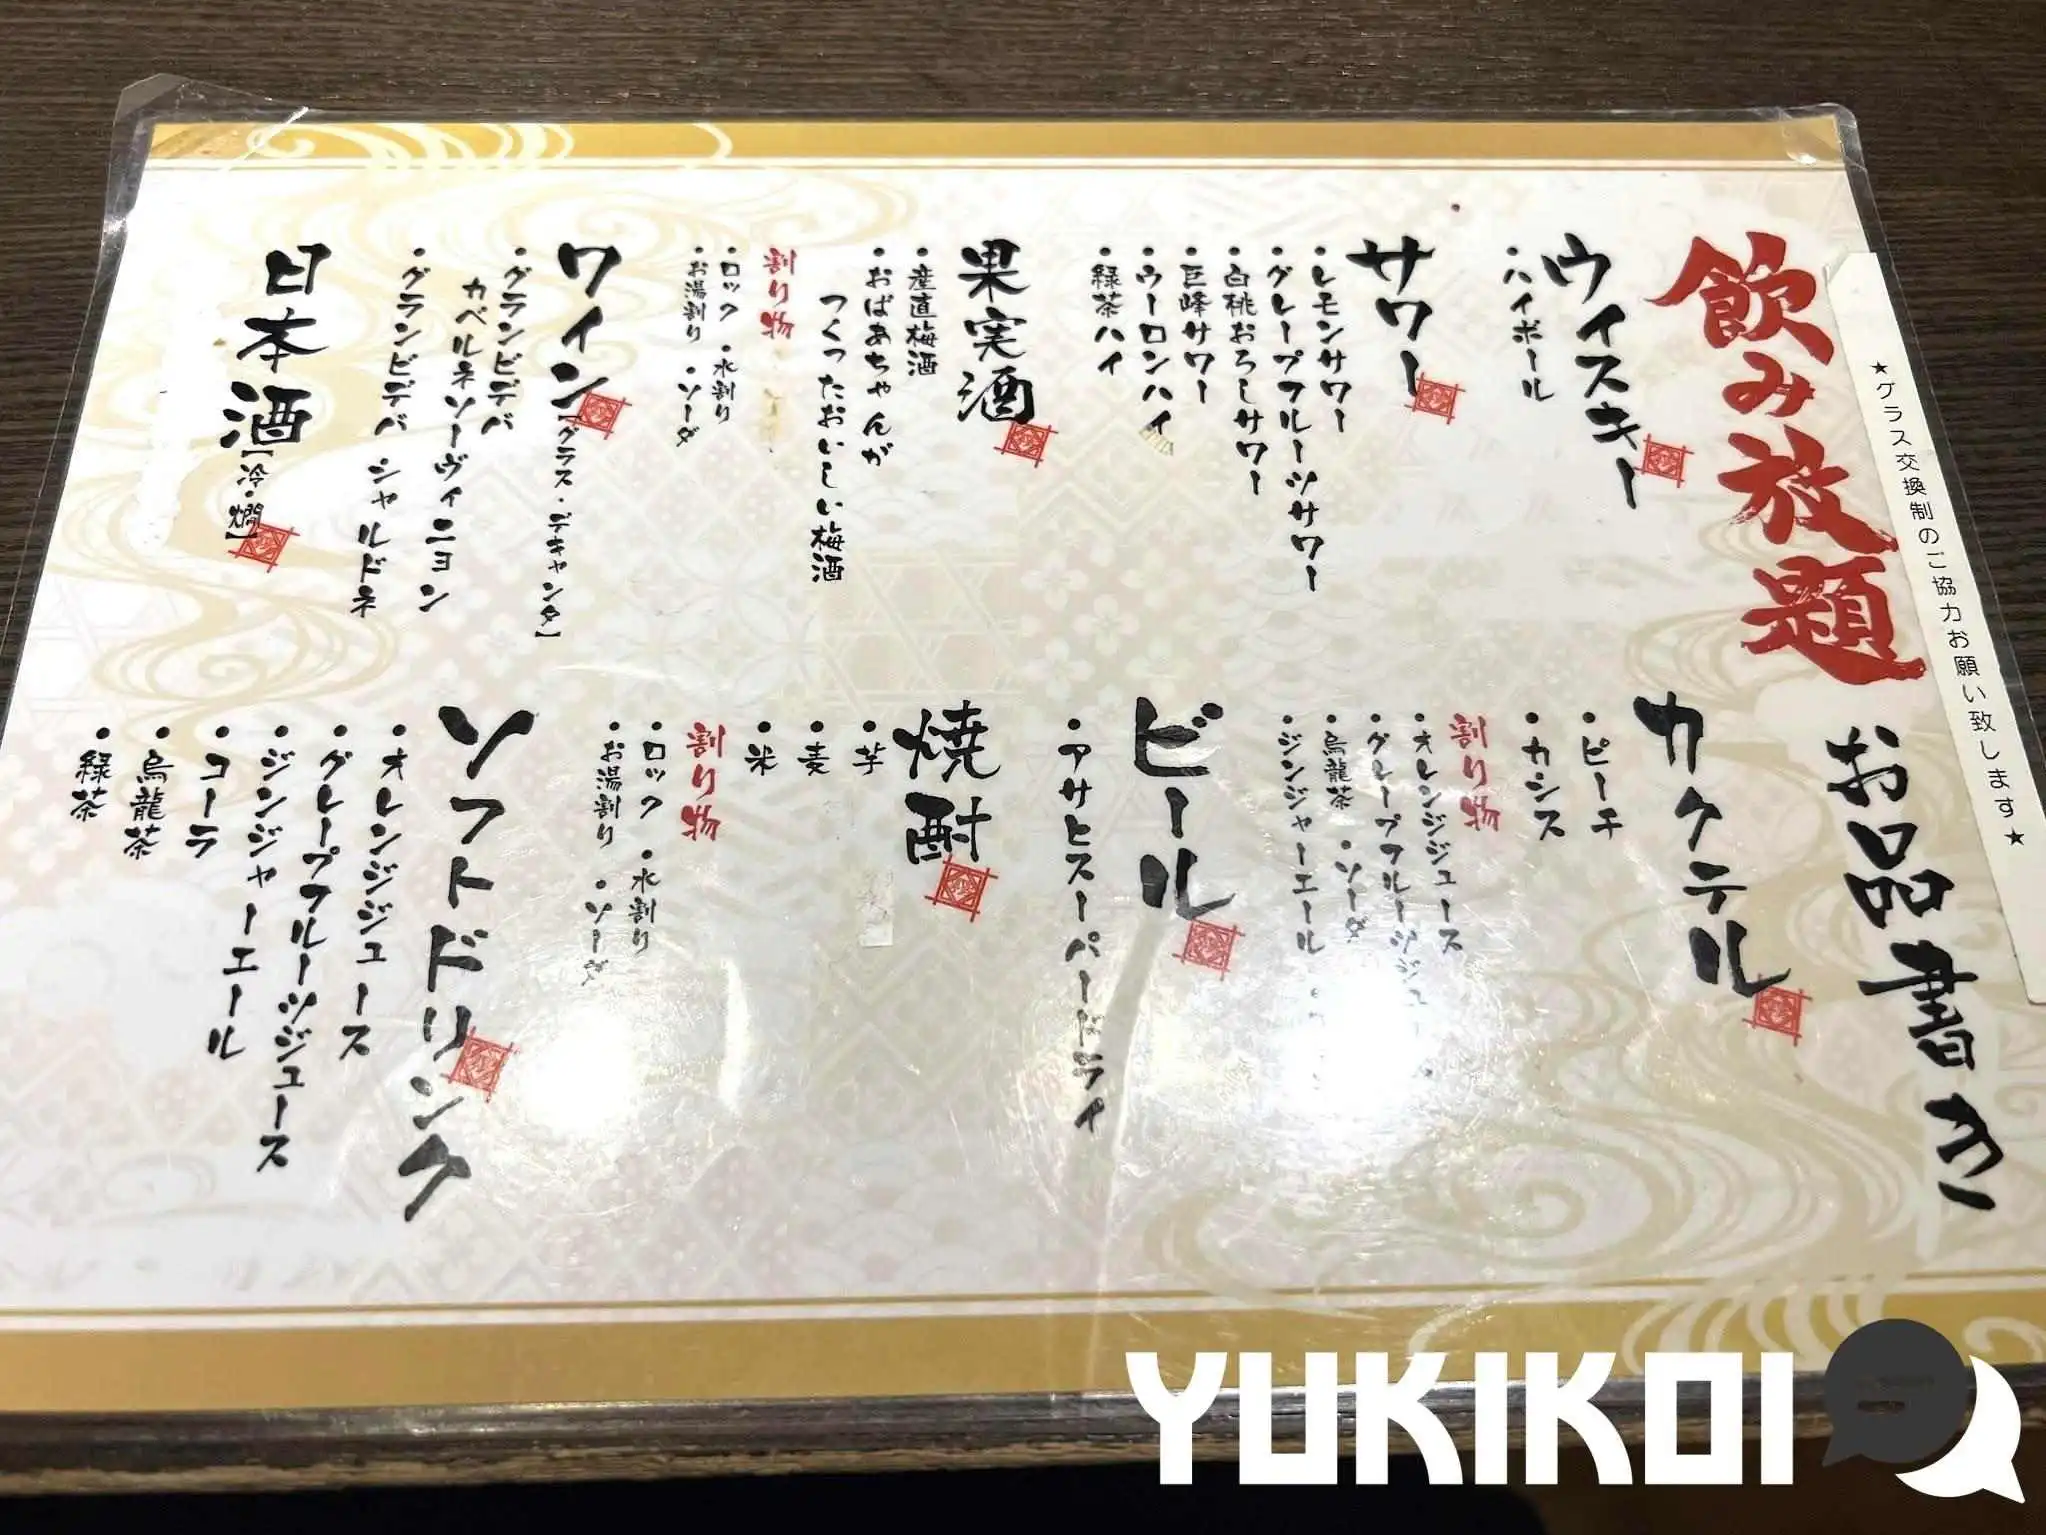 ★グラス交換制のご協力お願い致します★
飲み放題 お品書き
ウィスキー
・ハイボール
サワー
・レモンサワー
・グレープフルーツサワー
・白桃おろしサワー
・巨峰サワー
・ウーロンハイ
・緑茶ハイ
果実酒
・産直梅酒
・おばあちゃんが
つくったおいしい梅酒
割り物
・ロック ・水割り
・お湯割り ・ソーダ
ワイン【グラス・デキャンタ】
・グランビデバ
カベルネソーヴィニヨン
・グランビデバ シャルドネ
日本酒【冷・燗】
カクテル
・ピーチ
・カシス
割り物
・オレンジジュース
・グレープフルーツジュース
・烏龍茶 ・ソーダ
・ジンジャーエール
ビール
・アサヒスーパードライ
焼酎
・芋
・麦
・米
割り物
・ロック ・水割り
・お湯割り ・ソーダ
ソフトドリンク
・オレンジジュース
・グレープフルーツジュース
・ジンジャーエール
・コーラ
・烏龍茶
・緑茶
YUKIKOI